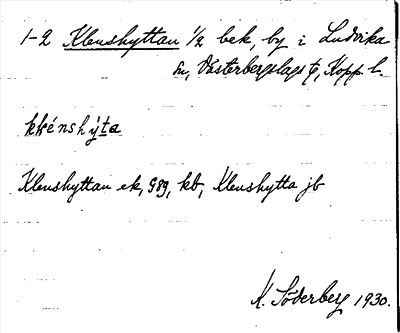 1-2 Klenshyttan 1/2 bek, by i Ludvika
sn, Västerbergslags tg, Kopp. l.
klénshỳta
Klenshyttan ek, GSg, kb, Klenshytta jb
K. Söderberg 1930.